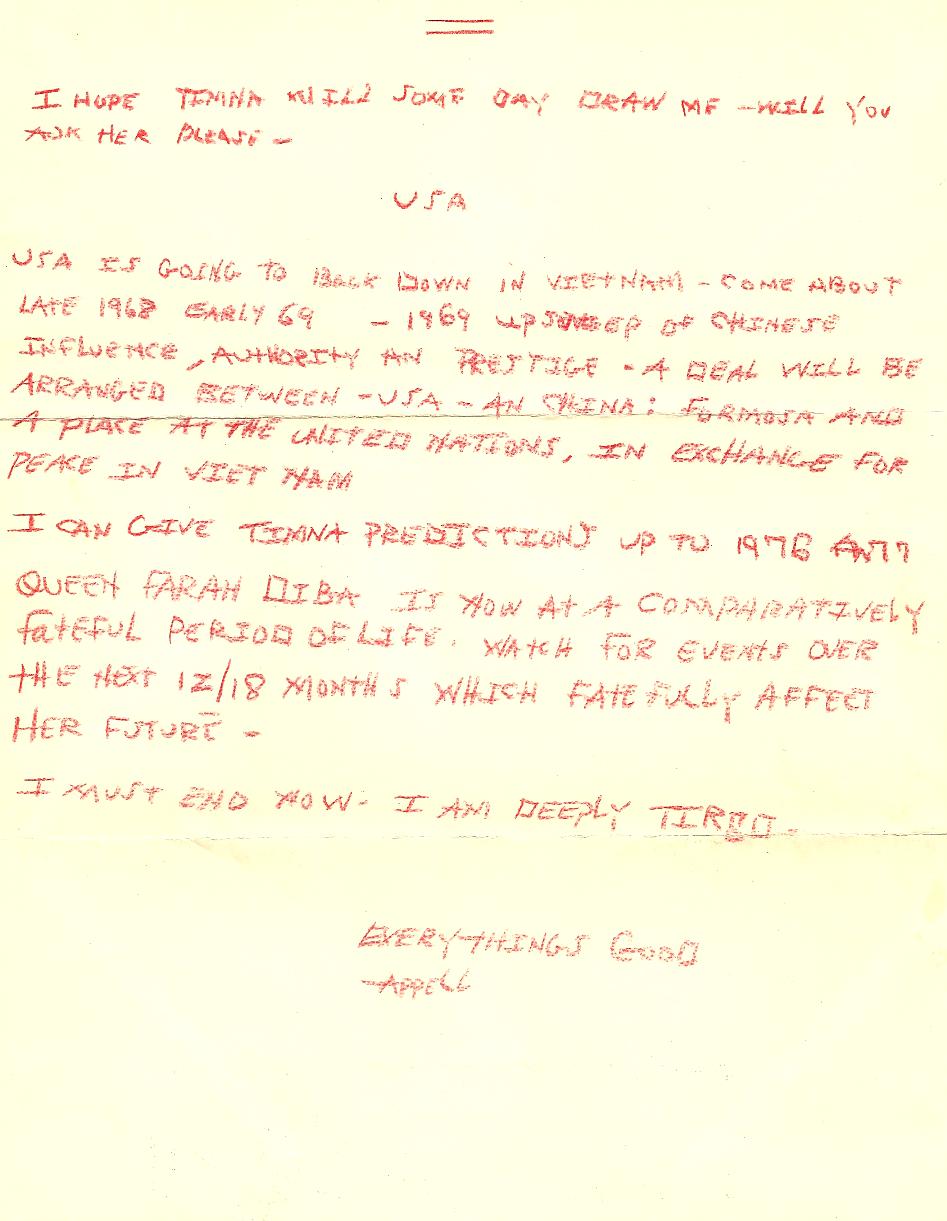 I HOPE TIMNA WILL SOME DAY DRAW ME - WILL YOU
ASK HER PLEASE -
USA
USA IS GOING TO BACK DOWN IN VIETNAM - COME ABOUT
LATE 1968 EARLY 69 - 1969 UPSWEEP OF CHINESE
INFLUENCE, AUTHORITY AN PRESTIGE - A DEAL WILL BE
ARRANGED BETWEEN - USA - AN CHINA: FORMOSA AND
A PLACE AT THE UNITED NATIONS, IN EXCHANGE FOR
PEACE IN VIET NAM
I CAN GIVE TIMNA PREDICTIONS UP TO 1976
QUEEN FARAH DIBA IS NOW AT A COMPARATIVELY
FATEFUL PERIOD OF LIFE. WATCH FOR EVENTS OVER
THE NEXT 12/18 MONTHS WHICH FATEFULLY AFFECT
HER FUTURE -
I MUST END NOW - I AM DEEPLY TIRED -
EVERYTHINGS GOOD
-APPELL